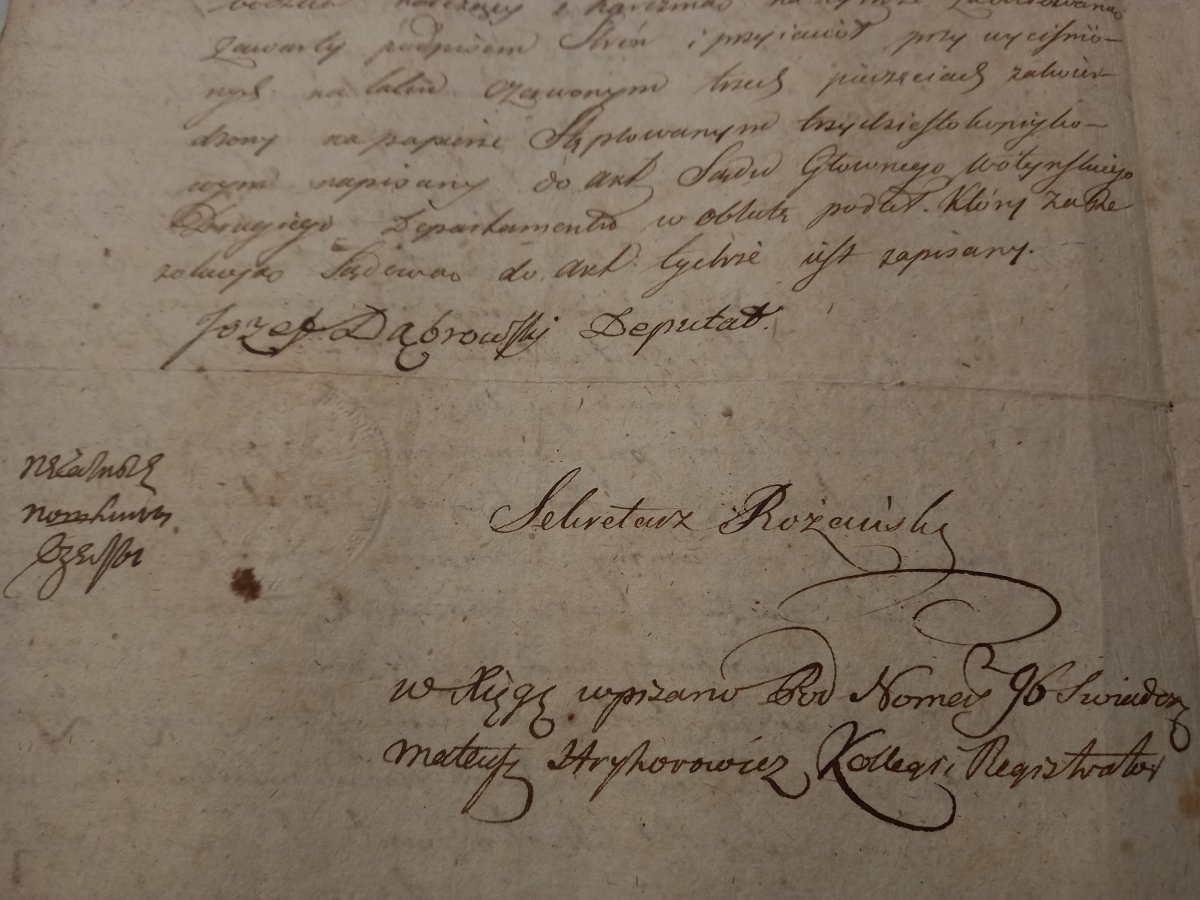 zawarty podpisem Stron i przyiaciół przy wyciśnio-
nych na laku czerwonym trzech pieczęciach zatwier-
dzony na papierze Stęplowanym trzydziestokopiyko-
wym napisany do akt Sądu Głownego Wołynskiego
Drugiego Departamentu w oblatę podał. Który za Re
zolucyą Sądową do akt tychże iest zapisany.
Jozef Dąbrowski Deputat.
Sekretarz Rożański
w Xięgę wpisano Pod Nomerē 96 Swiadczę
Mateusz Hryhorowicz Kollegs. Registrator